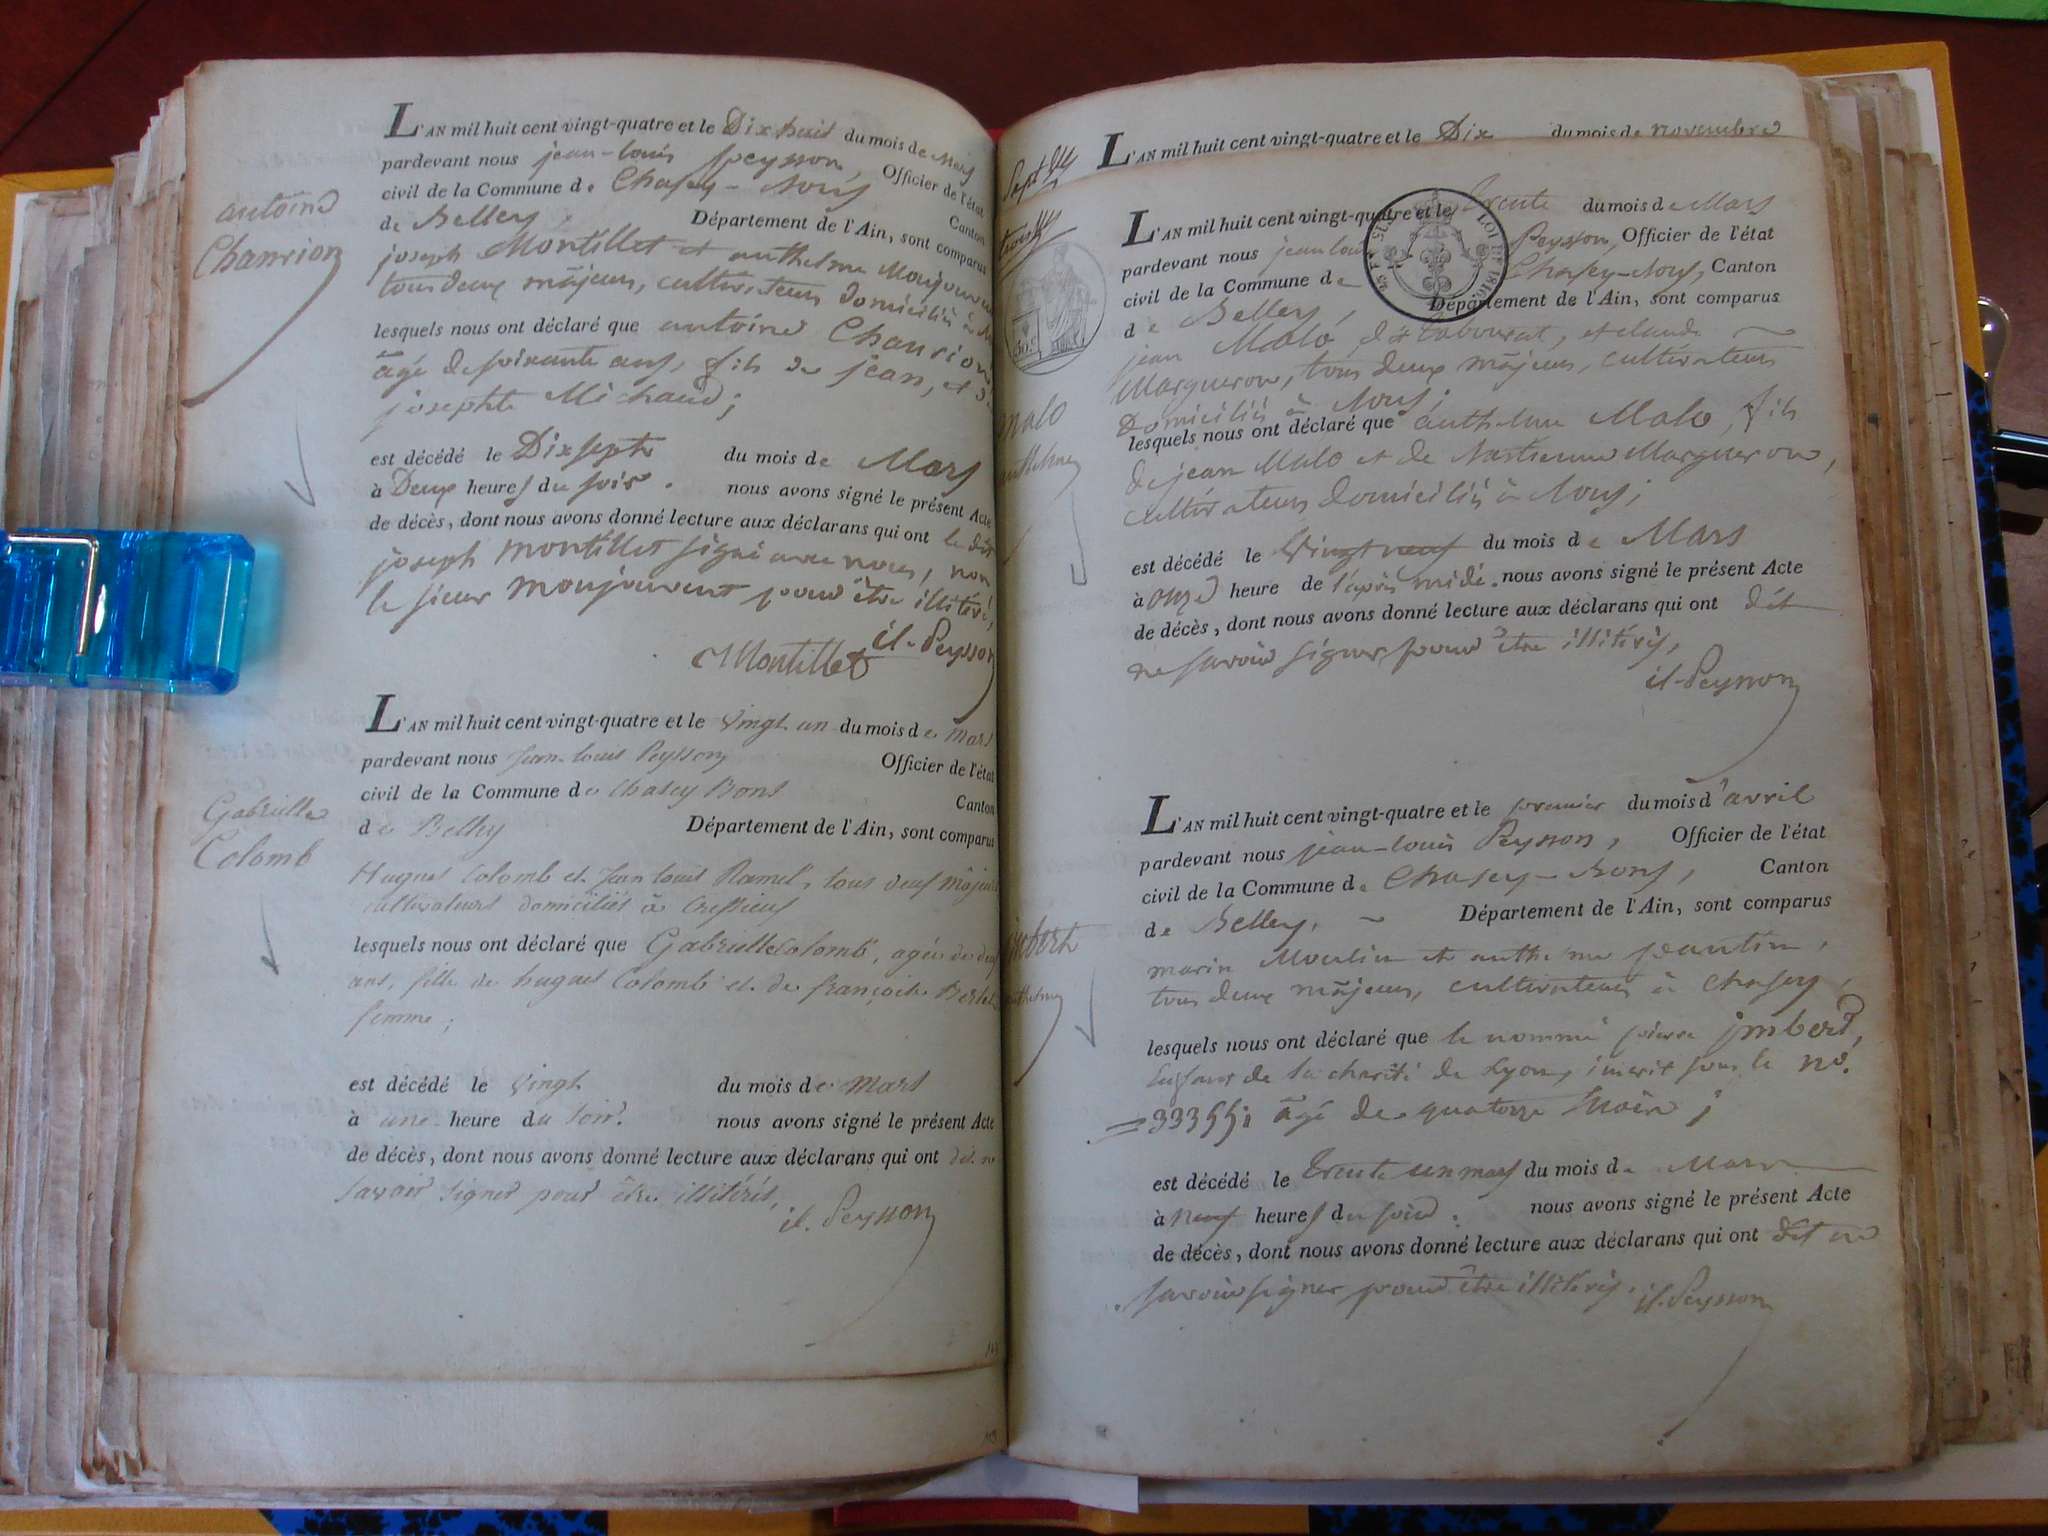 L'AN mil huit cent vingt-quatre et le Dix huit du mois de Mars
pardevant nous jean-louis peysson, Officier de l'état
civil de la Commune de Chasey-Bons Canton
de Belley. Département de l'Ain, sont comparus
antoine
Chanrion
joseph Montillet et anthelme Monjouvent
tous deux mâjeurs, cultivateurs domiciliés à
lesquels nous ont déclaré que antoine Chanrion
âgé de soixante ans, fils de jean, et de
josephte Michaud;
est décédé le Dix sept du mois de Mars
à Deux heures du soir. nous avons signé le présent Acte
de décès, dont nous avons donné lecture aux déclarans qui ont le dit
joseph montillet signé avec nous, non
le sieur monjouvent pour être illitéré,
Montillet jl. Peysson
L'AN mil huit cent vingt-quatre et le vingt un du mois de mars
pardevant nous Jean-louis Peysson Officier de l'état
civil de la Commune de Chasey Bons Canton
de Belley Département de l'Ain, sont comparus
Gabrielle
Colomb
Hugues Colomb et Jean louis Ramel, tous deux mâjeurs
cultivateurs domiciliés à Cressieux
lesquels nous ont déclaré que Gabrielle Colomb, agée de deux
ans, fille de hugues Colomb et de françoise Bertet
femme;
est décédé le vingt du mois de mars
à une heure du soir. nous avons signé le présent Acte
de décès, dont nous avons donné lecture aux déclarans qui ont dit ne
savoir signer pour être illitérés,
jl. Peysson
L'AN mil huit cent vingt-quatre et le Dix du mois de novembre
L'AN mil huit cent vingt-quatre et le Trente du mois de Mars
pardevant nous jean louis Peysson, Officier de l'état
civil de la Commune de Chasey-Bons, Canton
de Belley, Département de l'Ain, sont comparus
LOI DE 1816
50 c
jean Malo, dit Labourat, et claude
Marguerou, tous deux mâjeurs, cultivateurs
Domiciliés à Bons;
malo
anthelme
lesquels nous ont déclaré que anthelme Malo, fils
de jean Malo et de Marguerou,
cultivateurs domiciliés à Bons;
est décédé le Vingt neuf du mois de Mars
à onze heure de l'après midi. nous avons signé le présent Acte
de décès, dont nous avons donné lecture aux déclarans qui ont dit
ne savoir signer, pour être illitérés,
jl-Peysson
L'AN mil huit cent vingt-quatre et le premier du mois d'avril
pardevant nous jean-louis Peysson, Officier de l'état
civil de la Commune de Chasey-Bons, Canton
de Belley. Département de l'Ain, sont comparus
imbert
marin Moulin et anthelme pantin,
tous deux mâjeurs, cultivateurs à chasey,
lesquels nous ont déclaré que le nommé pierre jmbert,
Enfant de la charité de Lyon, inscrit sous le no.
=33355; âgé de quatorze mois;
est décédé le Trente un mars du mois de Mars
à neuf heures du soir. nous avons signé le présent Acte
de décès, dont nous avons donné lecture aux déclarans qui ont dit ne
savoir signer pour être illitérés. jl. Peysson